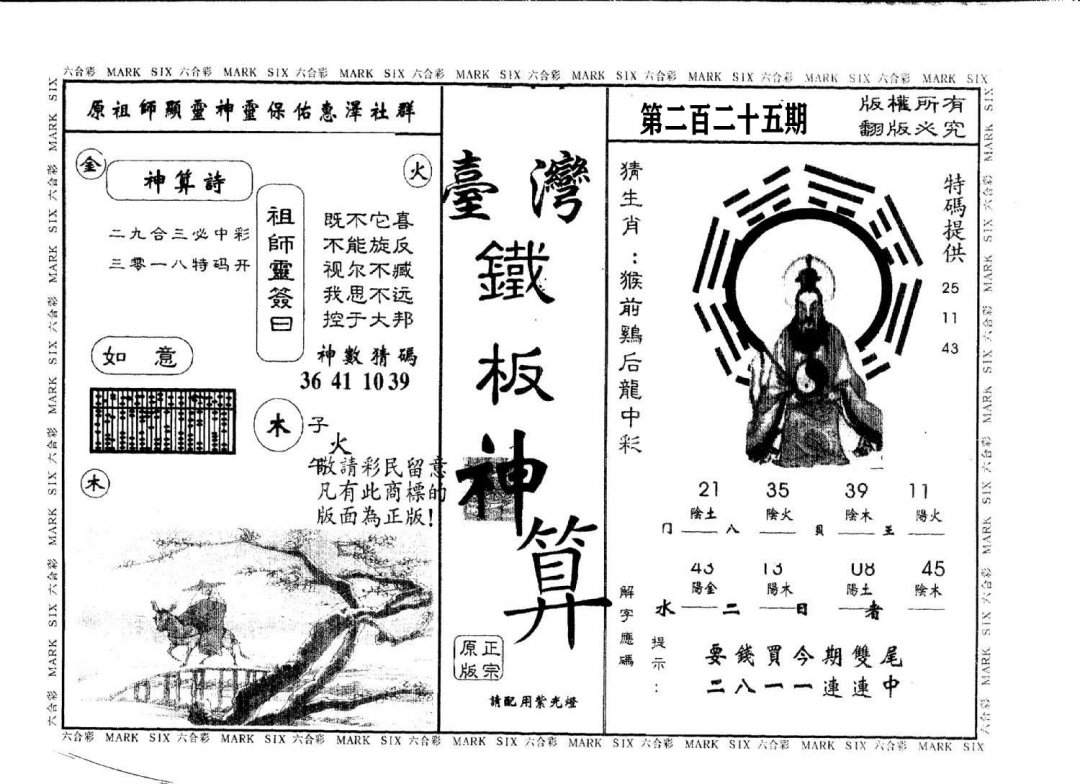 六合彩 MARK SIX 六合彩 MARK SIX 六合彩 MARK SIX 六合彩 MARK SIX 六合彩 MARK SIX 六合彩 MARK SIX 六合彩 MARK SIX 六合彩 MARK SIX
原祖師顯靈神靈保佑惠澤社群
金
火
神算詩
二九合三必中彩
三零一八特码开
祖師靈簽曰
既不它喜
不能旋反
视尔不臧
我思不远
控于大邦
神數猜碼
36 41 10 39
如意
木
子
火
午
木
敬請彩民留意
凡有此商標的
版面為正版!
臺灣
鐵
板
神
算
正宗
原版
請配用紫光燈
第二百二十五期
版權所有
翻版必究
猜生肖:猴前鷄后龍中彩
特碼提供
25
11
43
21 35 39 11
陰土 陰火 陰木 陽火
卩 八 貝 王
43 13 08 45
陽金 陽木 陽土 陰木
水 二 日 者
解字應碼
提示:
要錢買今期雙尾
二八一一連連中
六合彩 MARK SIX 六合彩 MARK SIX 六合彩 MARK SIX 六合彩 MARK SIX 六合彩 MARK SIX 六合彩 MARK SIX 六合彩 MARK SIX 六合彩 MARK SIX